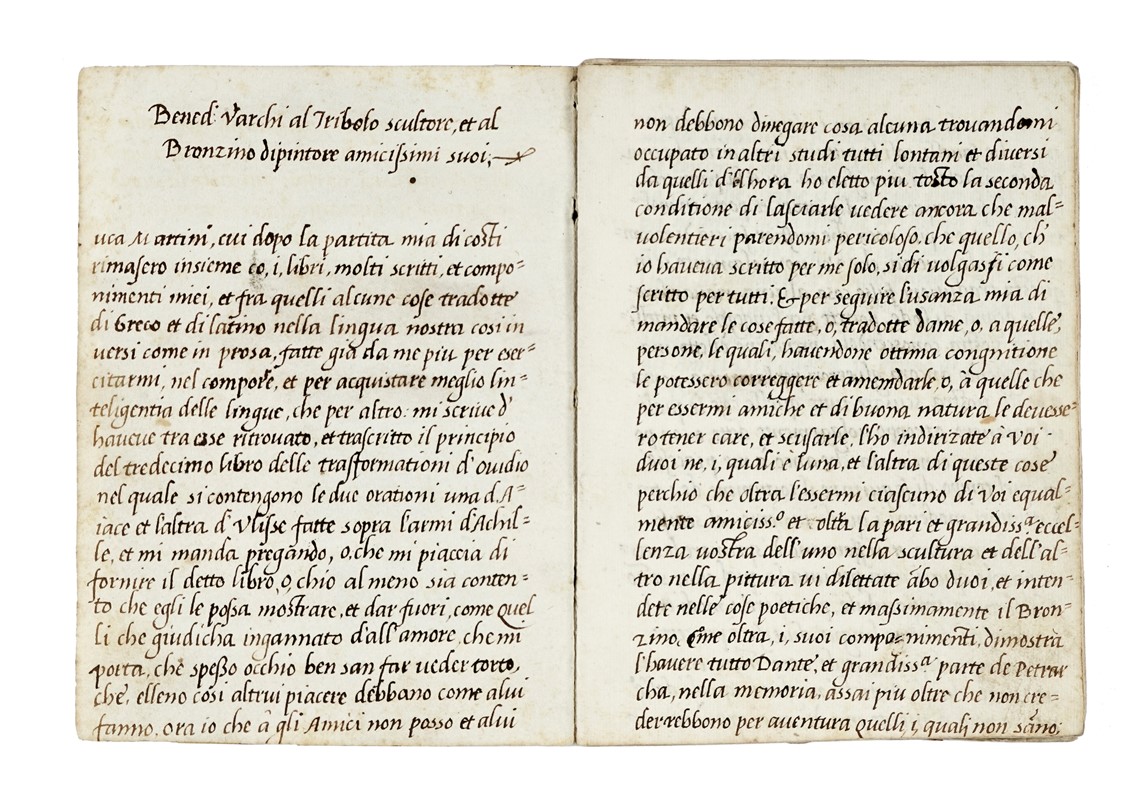 Bened: Varchi al Tribolo scultore, et al
Bronzino dipintore amicissimi suoi;
uca Martini, cui dopo la partita mia di costi
rimasero insieme co, i, libri, molti scritti, et compo=
nimenti miei, et fra quelli alcune cose tradotte
di Greco et di latino nella lingua nostra cosi in
versi come in prosa, fatte già da me piu per eser=
citarmi, nel comporre, et per acquistare meglio lin=
telligentia delle lingue, che per altro. mi scrive d'
haveve tra esse ritrovato, et trascritto il principio
del tredecimo libro delle trasformationi d'ovidio
nel quale si contengono le due orationi una d'A=
iace et l'altra d'Ulisse fatte sopra l'armi d'Achil=
le, et mi manda pregando, o, che mi piaccia di
fornire il detto libro, o, chio al meno sia conten=
to che egli le possa mostrare, et dar fuori, come quel
li che giudicha ingannato d'all'amore, che mi
porta, chè spesso occhio ben san far veder torto,
che, elleno cosi altrui piacere debbano come alui
fanno. ora io che à gli Amici non posso et alui
non debbono dinegare cosa alcuna trovandomi
occupato in altri studi tutti lontani et diversi
da quelli d'elhora ho eletto piu tosto la seconda
conditione di lasciarle vedere ancora che mal=
volentieri parendomi pericoloso. che quello, ch'
io haveva scritto per me solo, si divolgassi come
scritto per tutti. & per seguire l'usanza mia di
mandare le cose fatte, o, tradotte dame, o, a quelle,
persone, le quali, havendone ottima congnitione
le potessero correggere et amendarle, o, à quelle che
per essermi amiche et di buona natura le devesse=
ro tener care, et scusarle, l'ho indirizate à voi
duoi ne, i, quali è luna, et l'altra di queste cose
perchio che oltra l'essermi ciascuno di voi equal=
mente amiciss.º et oltra la pari et grandissª eccel=
lenza vostra dell'uno nella scultura et dell'al=
tro nella pittura vi dilettate ābo duoi, et inten=
dete nelle cose poetiche, et massimamente il Bron=
zino. Come oltra, i, suoi componimenti, dimostra
l'havere tutto Dante, et grandissª parte de Petrar
cha, nella memoria, assai piu oltre che non cre=
derrebbono per aventura quelli, i, quali non sāno;